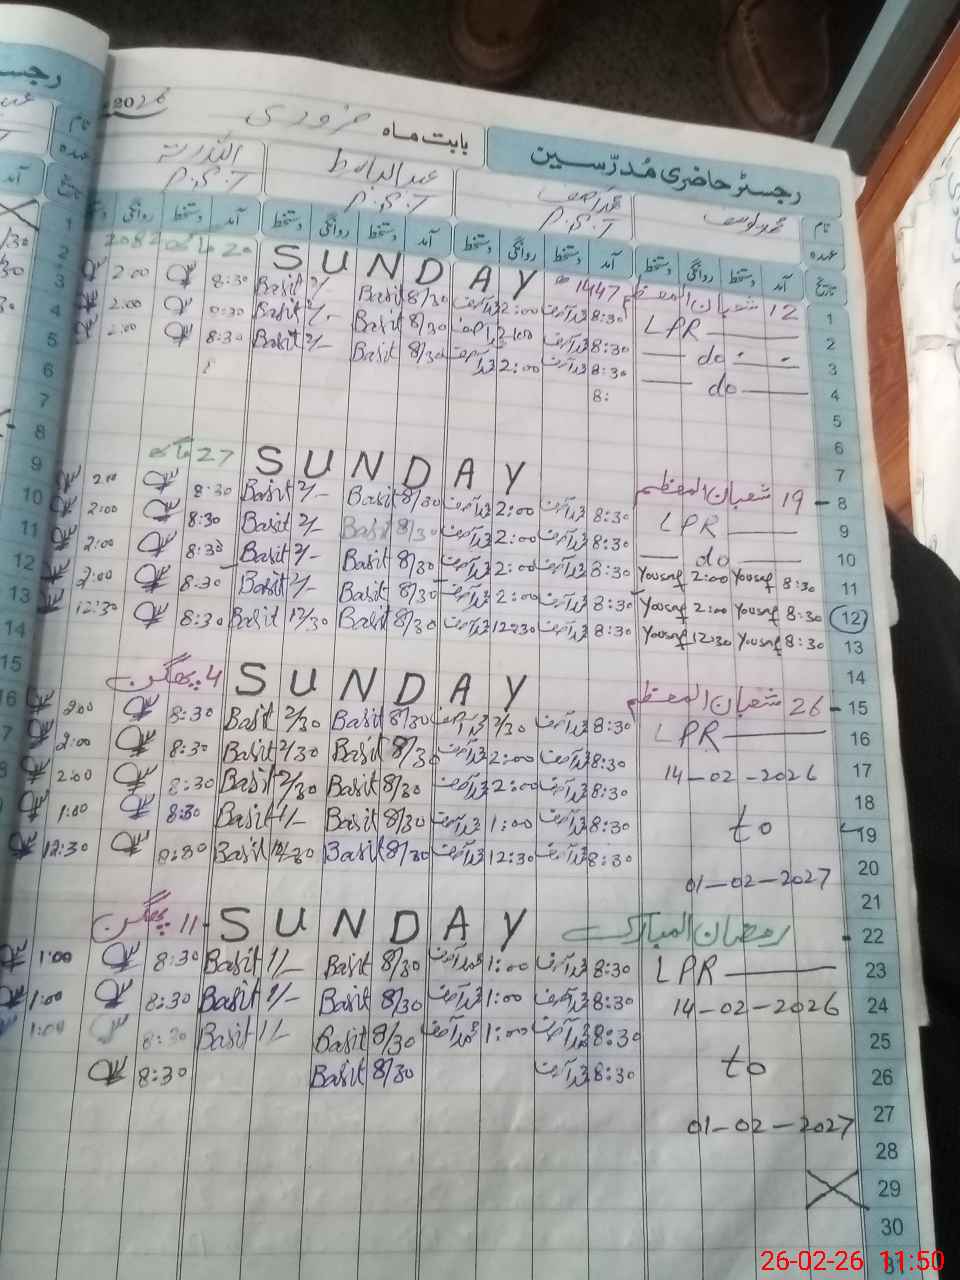 رجسٹر حاضری مُدرّسین بابت ماہ فروری 2026
نام محمد یوسف عبدالباسط
عہدہ P.S.T P.S.T P.S.T
تاریخ آمد دستخط روانگی دستخط آمد دستخط روانگی دستخط آمد دستخط روانگی دستخط آمد دستخط روانگی
1 12 شعبان المعظم 1447 SUNDAY 20
2 LPR 8:30 2:00 8/30 Basit 2/- Basit 8:30 2:00
3 do 8:30 8/30 Basit 2/- Basit 8:30 2:00
4 do 8:30 2:00 8/30 Basit 2/- Basit 8:30 2:00
5 8:
6
7
8 19 شعبان المعظم SUNDAY 27
9 LPR 8:30 2:00 8/30 Basit 2/- Basit 8:30 2:00
10 do 8:30 2:00 8/30 Basit 2/- Basit 8:30 2:00
11 8:30 Yousaf 2:00 Yousaf 8:30 2:00 8/30 Basit 2/- Basit 8:30 2:00
12 8:30 Yousaf 2:00 Yousaf 8:30 2:00 8/30 Basit 2/- Basit 8:30 2:00
13 8:30 Yousaf 12:30 Yousaf 8:30 12:30 8/30 Basit 12/30 Basit 8:30 12:30
14
15 26 شعبان المعظم SUNDAY 4 پھگن
16 LPR 8:30 2/30 8/30 Basit 2/30 Basit 8:30 2:00
17 14-02-2026 8:30 2:00 8/30 Basit 2/30 Basit 8:30 2:00
18 8:30 2:00 8/30 Basit 2/30 Basit 8:30 2:00
19 to 8:30 1:00 8/30 Basit 1/- Basit 8:30 1:00
20 01-02-2027 8:30 12:30 8/30 Basit 12/30 Basit 8:30 12:30
21
22 رمضان المبارک SUNDAY 11 پھگن
23 LPR 8:30 1:00 8/30 Basit 1/- Basit 8:30 1:00
24 14-02-2026 8:30 1:00 8/30 Basit 1/- Basit 8:30 1:00
25 8:30 1:00 8/30 Basit 1/- Basit 8:30 1:00
26 to 8:30 8/30 Basit 8:30
27 01-02-2027
28
29
30
31
26-02-26 11:50